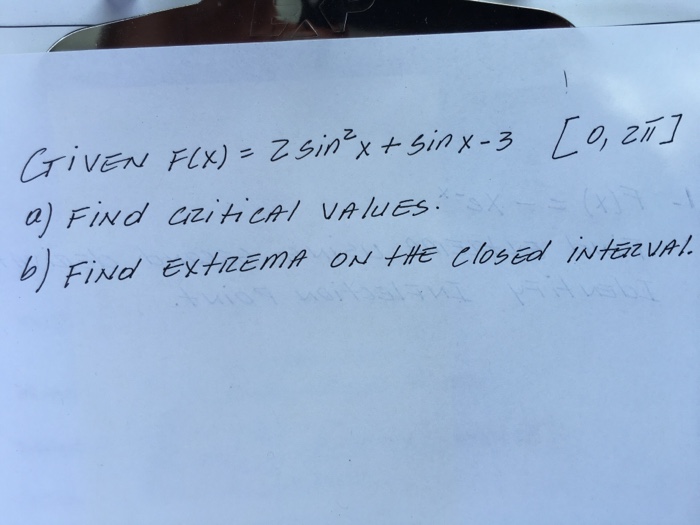 GIVEN F(X) = 2 sin²x + sin x - 3 [0, 2π]
a) FiNd CRITICAL VALUES.
b) FiNd EXTREMA ON tHE Closed iNtERVAL.